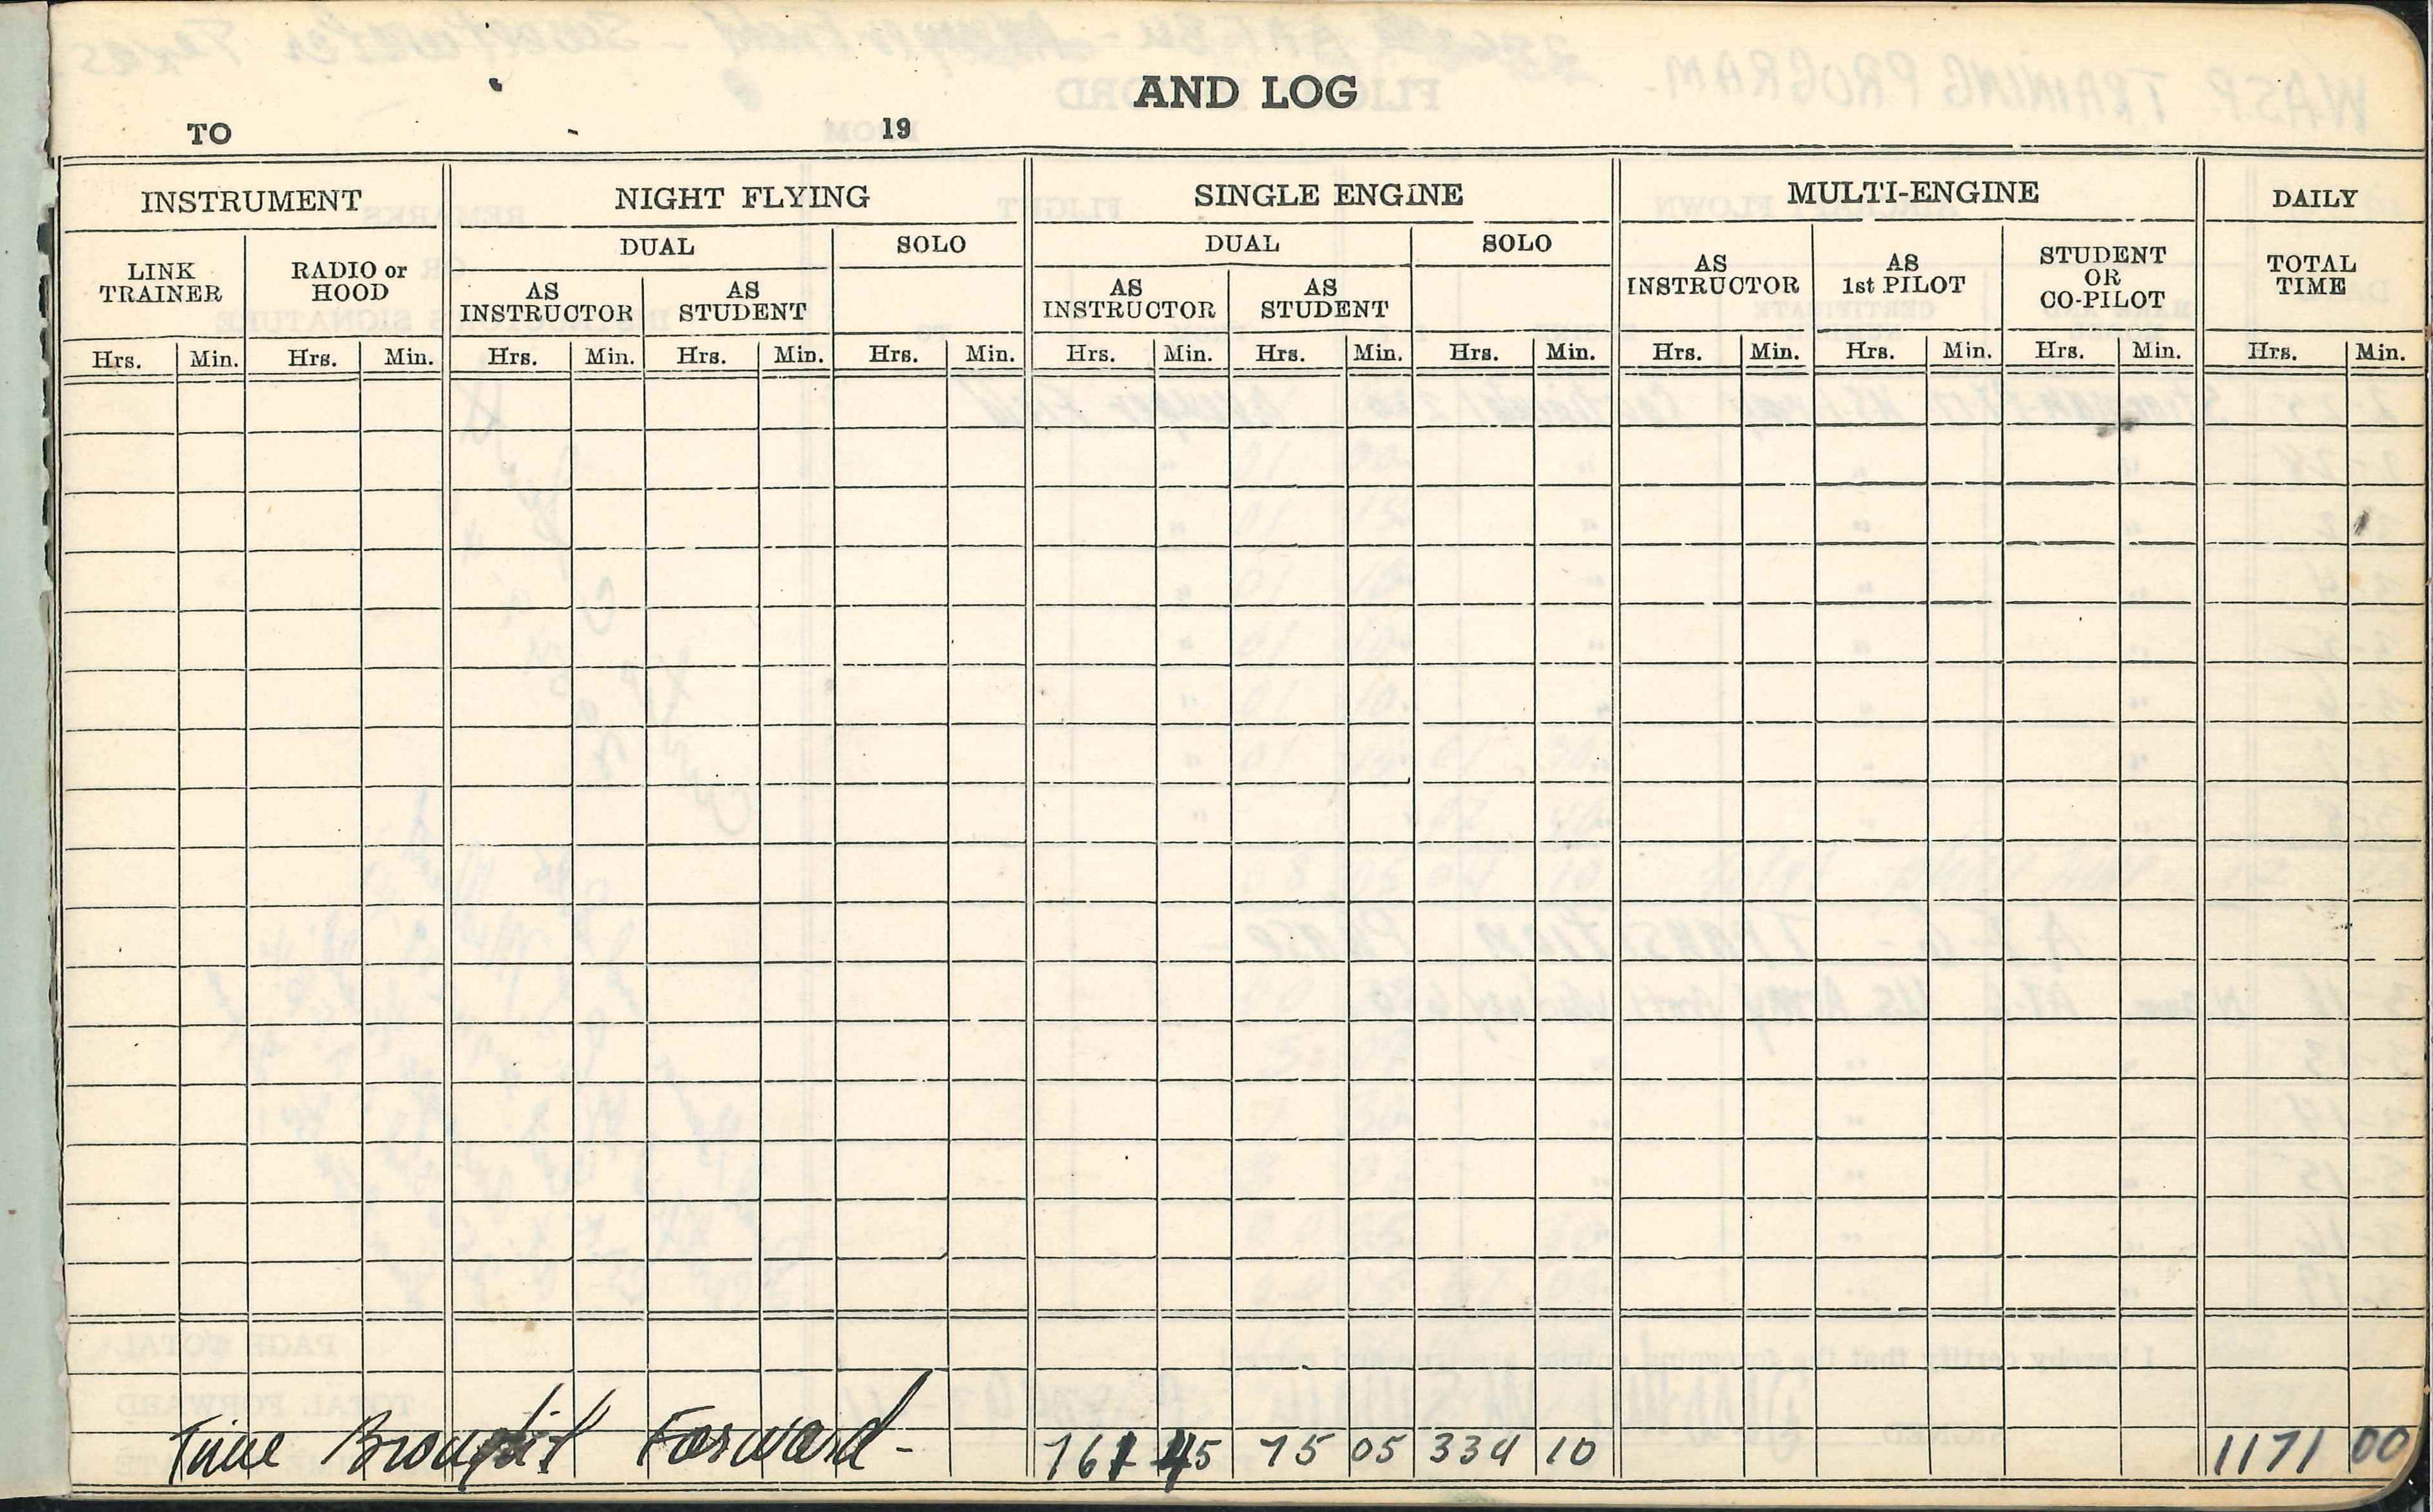 AND LOG
TO 19
INSTRUMENT NIGHT FLYING SINGLE ENGINE MULTI-ENGINE DAILY
LINK TRAINER RADIO or HOOD DUAL SOLO DUAL SOLO AS INSTRUCTOR AS 1st PILOT STUDENT OR CO-PILOT TOTAL TIME
AS INSTRUCTOR AS STUDENT AS INSTRUCTOR AS STUDENT
Hrs. Min. Hrs. Min. Hrs. Min. Hrs. Min. Hrs. Min. Hrs. Min. Hrs. Min. Hrs. Min. Hrs. Min. Hrs. Min. Hrs. Min. Hrs. Min.
Time Brought Forward - 761 45 75 05 334 10 1171 00